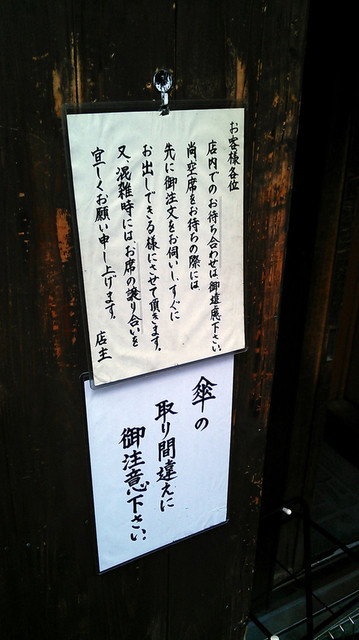 お客様各位
店内でのお待ち合わせは御遠慮下さい。
尚空席をお待ちの際には、
先に御注文をお伺いし、すぐに
お出しできる様にさせて頂きます。
又、混雑時には、お席の譲り合いを
宜しくお願い申し上げます。
店主
傘の
取り間違えに
御注意下さい